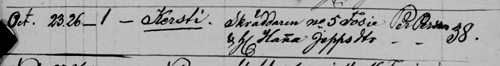 Oct. 23. 26 – 1 – Kersti. Skräddaren no 5 Fosie Per Persson 38.
& h/ Hanna Jeppsdtr – –